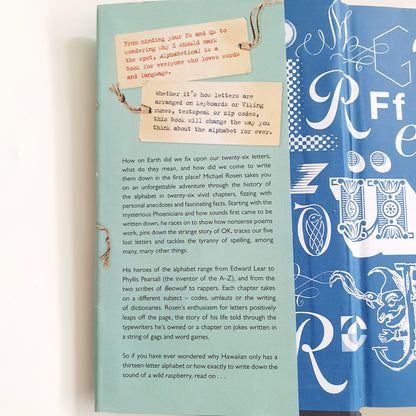 From minding your Ps and Qs to
wondering why X should mark
the spot, Alphabetical is a
book for everyone who loves words
and language.
Whether it's how letters are
arranged on keyboards or Viking
runes, textspeak or zip codes,
this book will change the way you
think about the alphabet for ever.
How on Earth did we fix upon our twenty-six letters,
what do they mean, and how did we come to write
them down in the first place? Michael Rosen takes you
on an unforgettable adventure through the history of
the alphabet in twenty-six vivid chapters, fizzing with
personal anecdotes and fascinating facts. Starting with the
mysterious Phoenicians and how sounds first came to be
written down, he races on to show how nonsense poems
work, pins down the strange story of OK, traces our five
lost letters and tackles the tyranny of spelling, among
many, many other things.
His heroes of the alphabet range from Edward Lear to
Phyllis Pearsall (the inventor of the A–Z), and from the
two scribes of Beowulf to rappers. Each chapter takes
on a different subject – codes, umlauts or the writing
of dictionaries. Rosen's enthusiasm for letters positively
leaps off the page, the story of his life told through the
typewriters he's owned or a chapter on jokes written in
a string of gags and word games.
So if you have ever wondered why Hawaiian only has a
thirteen-letter alphabet or how exactly to write down the
sound of a wild raspberry, read on . . .
M
G
R
Ff
e
z
U
R